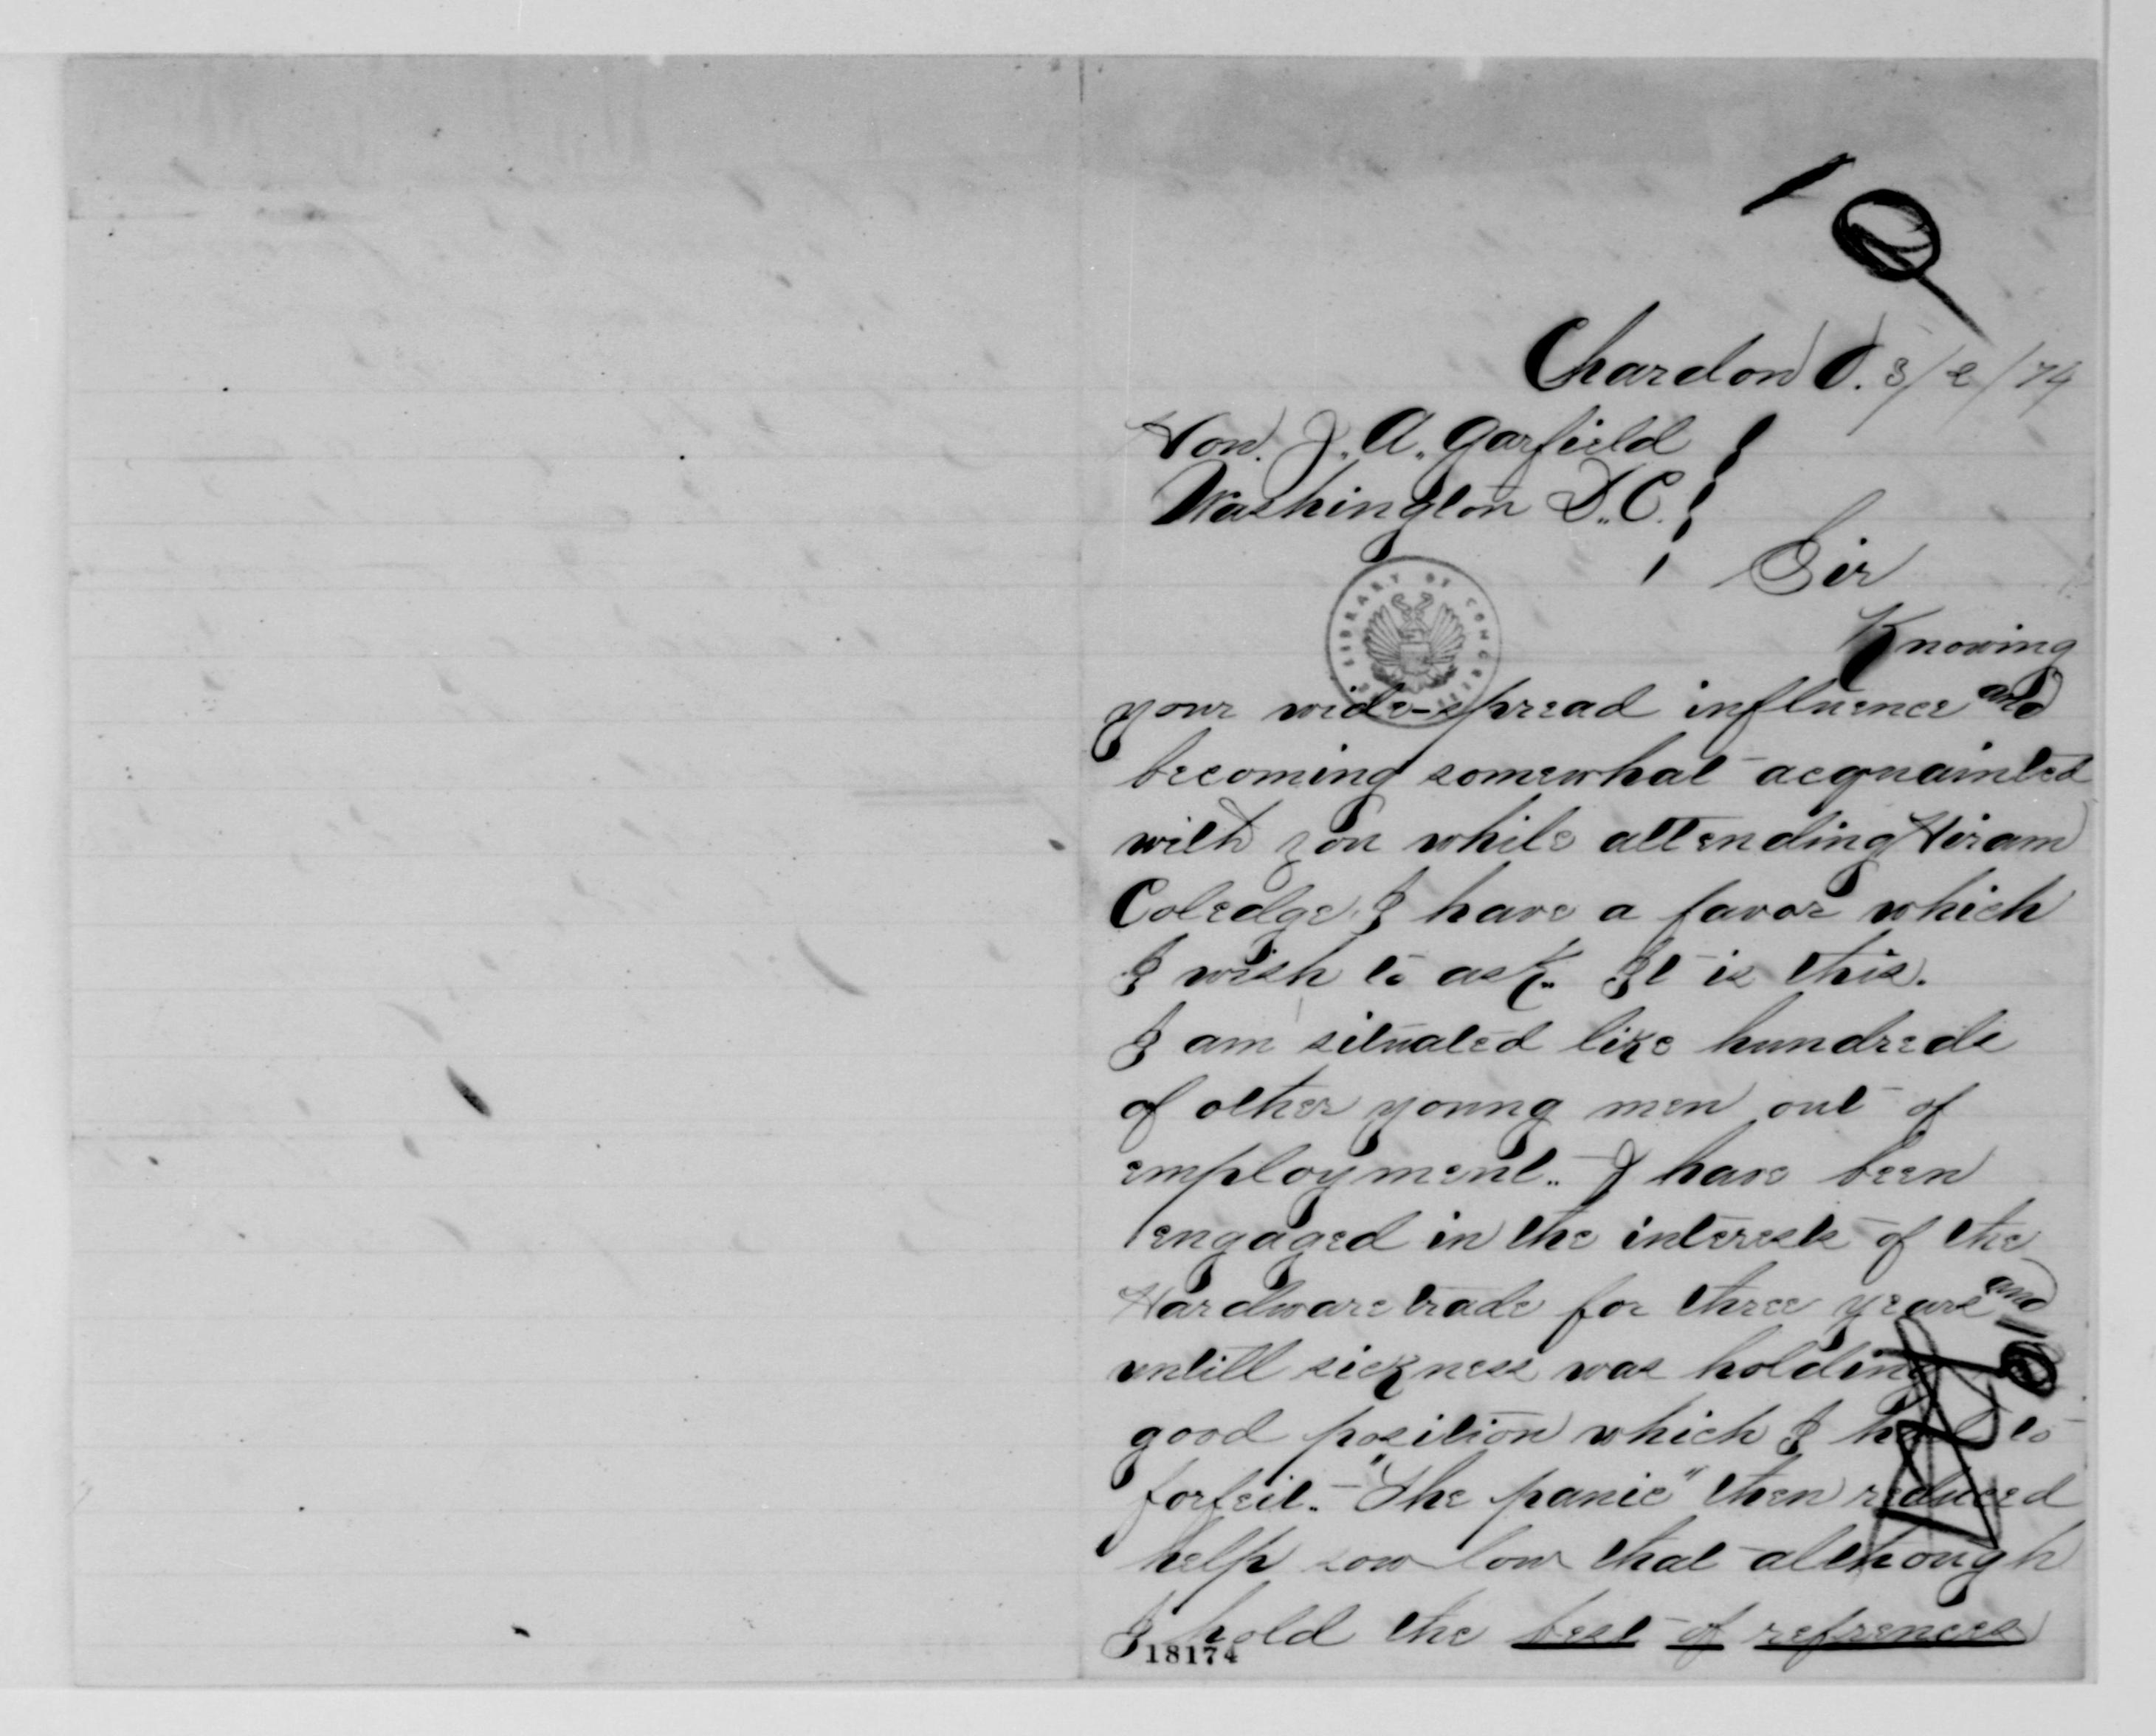 Chardon O. 3/2/74
Hon. J. A. Garfield
Washington D.C.
Sir
Knowing
your wide-spread influence and
becoming somewhat acquainted
with you while attending Hiram
Coledge I have a favor which
I wish to ask. It is this.
I am situated like hundreds
of other young men out of
employment. I have been
engaged in the interests of the
Hardware trade for three years and
untill sickness was holding
good position which I had to
forfeit. "The panic" then reduced
help sow low that although
I hold the best of refrences
18174
LIBRARY OF CONGRESS